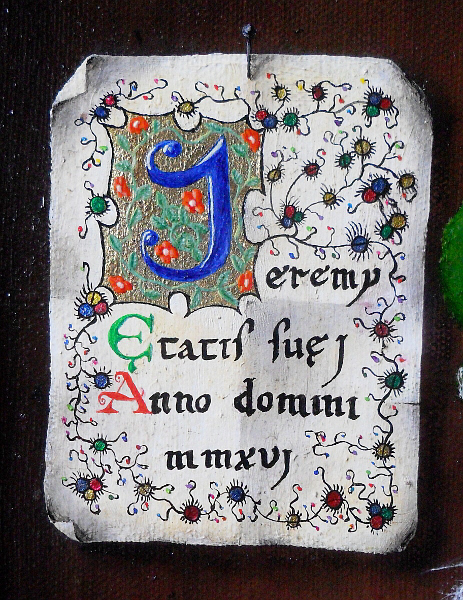 Jeremy
Ętatiſ ſuę j
Anno domini
mmxvj